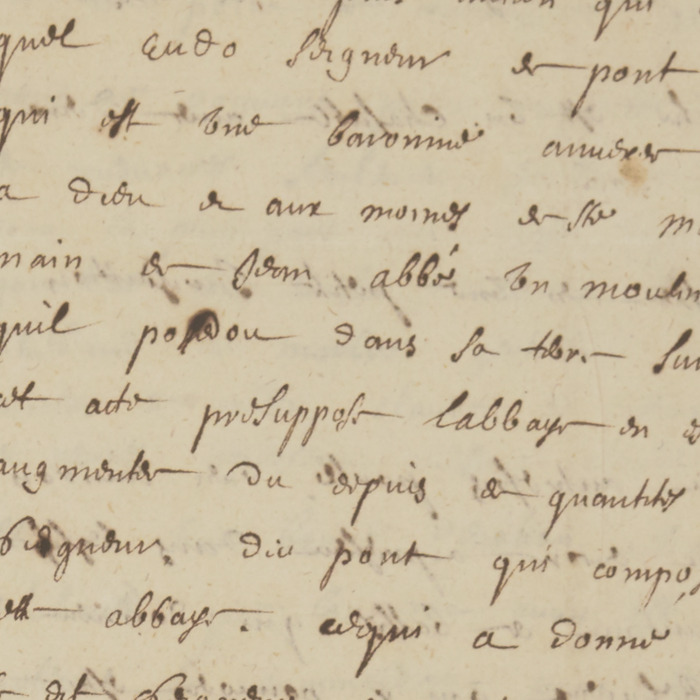 qui
quel Eudo seigneur de pont
qui est une baronnie annexee
a dieu et aux moines de ste m
main de Jean abbé un moulin
quil possedoit dans sa terre sur
cet acte presuppose labbaye en
augmentee du depuis de quantités
seigneur du pont qui compo
abbaye . cequi a donné